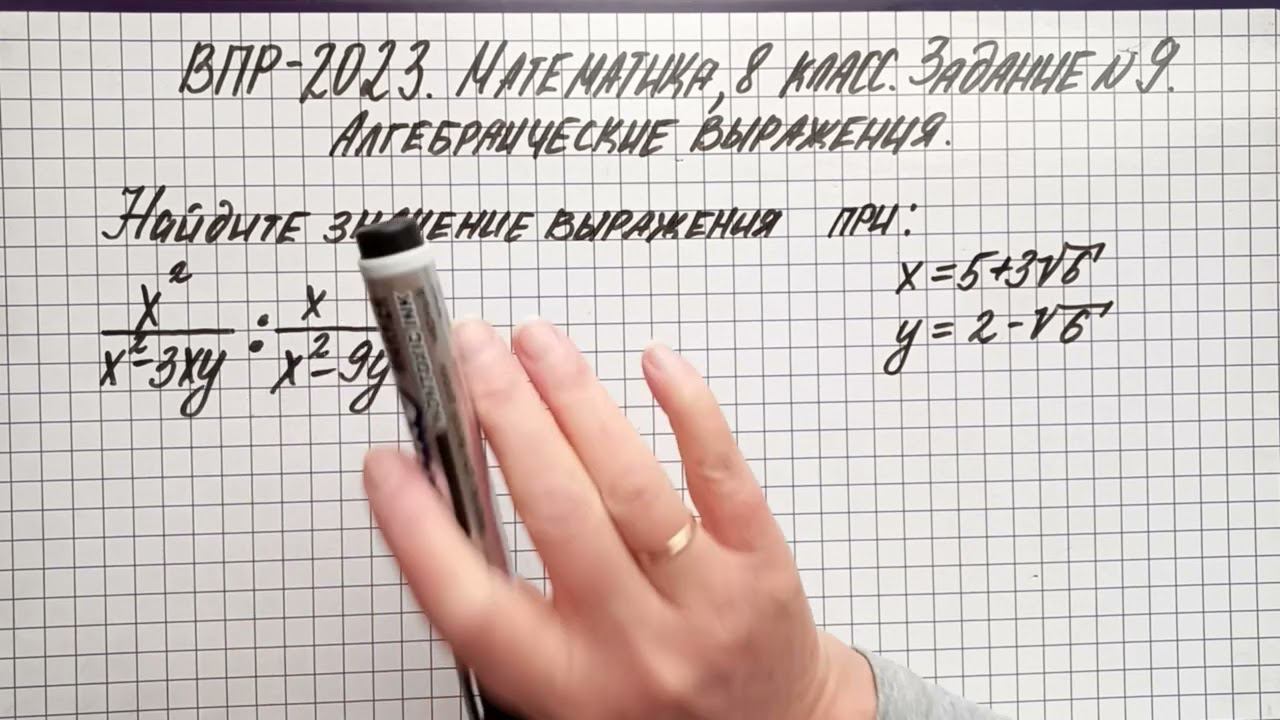 ВПР-2023. МАТЕМАТИКА, 8 КЛАСС. ЗАДАНИЕ №9.
АЛГЕБРАИЧЕСКИЕ ВЫРАЖЕНИЯ.
Найдите ВЫРАЖЕНИЯ ПРИ:
x² / (x² - 3xy) : x / (x² - 9y
x = 5+3√6
y = 2-√6
INK